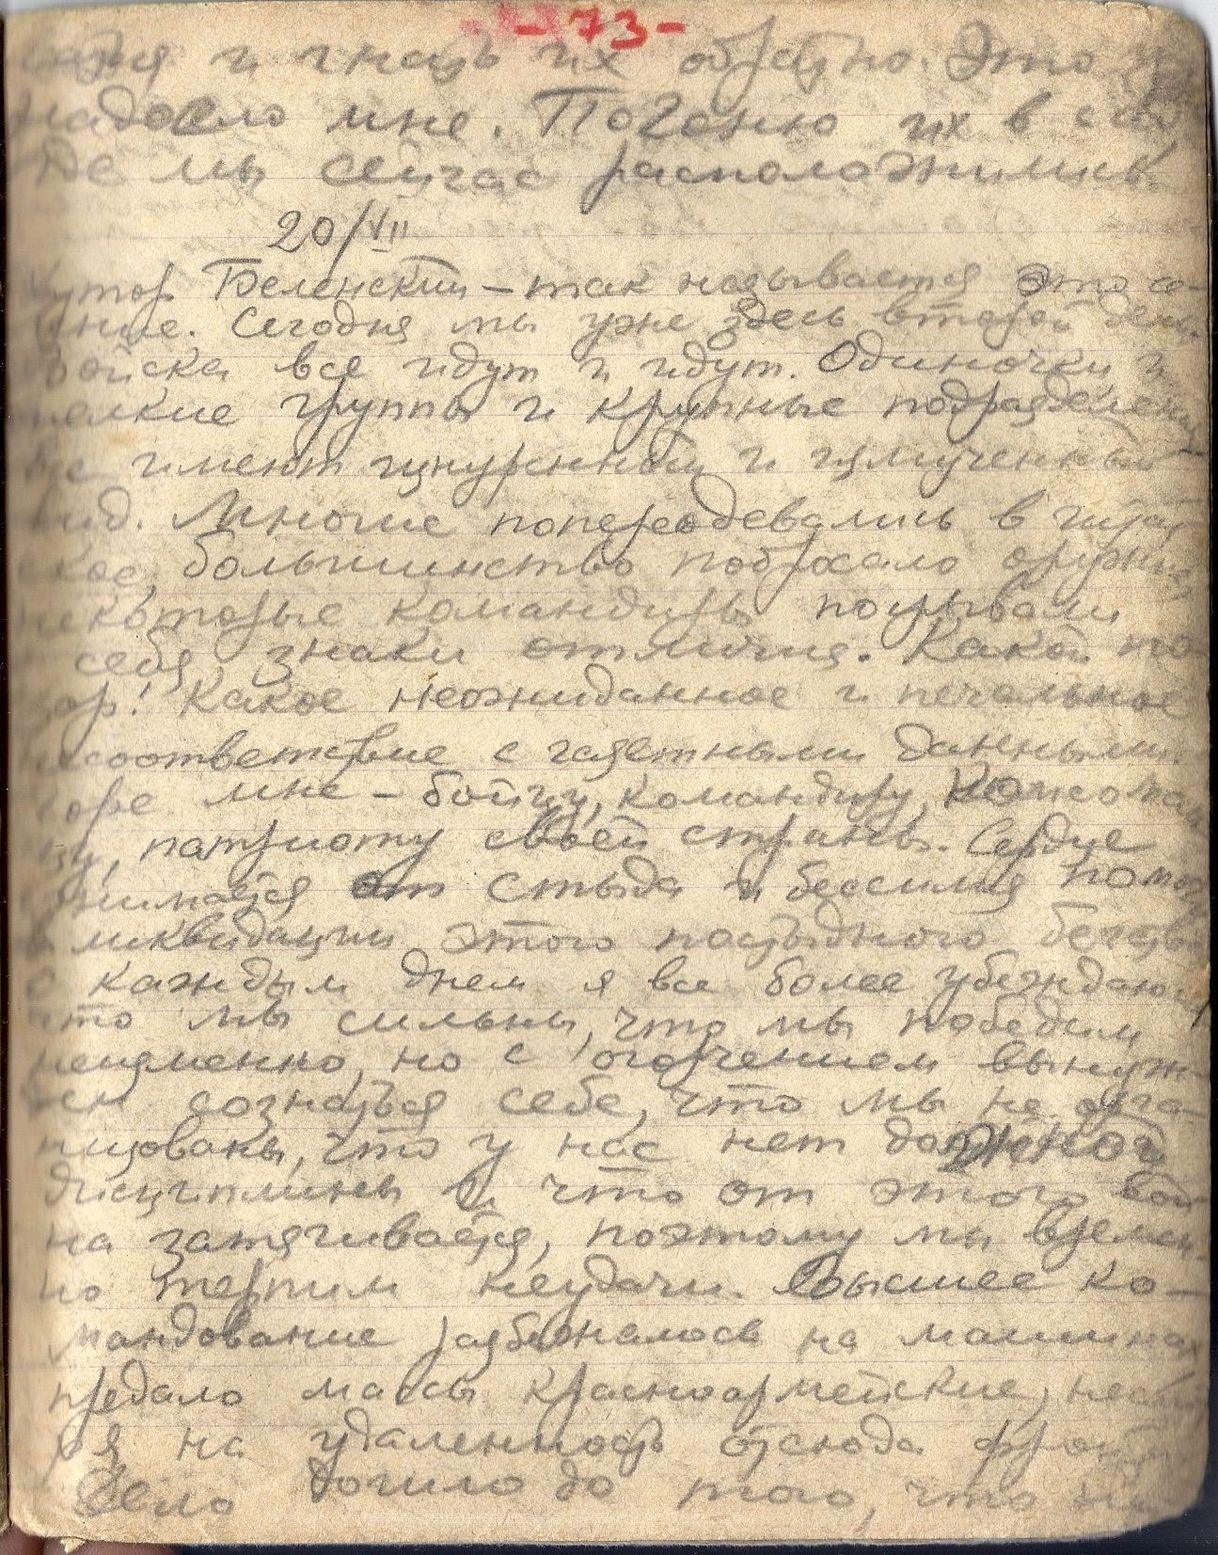 -73-
и гнать их обратно. Это
надоело мне. Погоню их в
где мы сейчас расположились.
20/VII
Хутор Беленский – так называется это се-
ление. Сегодня мы уже здесь второй день.
Войска все идут и идут. Одиночки и
мелкие группы и крупные подразделения
Все имеют изнуренный и измученный
вид. Многие попереодевались в штат-
ское, большинство побросало оружие
некоторые командиры посрывали
с себя знаки отличия. Какой по-
зор! Какое неожиданное и печальное
несоответствие с газетными данными.
Горе мне – бойцу, командиру, комсомоль-
цу, патриоту своей страны. Сердце
сжимается от стыда и бессилия помочь
в ликвидации этого постыдного бегства
С каждым днем я все более убеждаюсь,
что мы сильны, что мы победим
неизменно, но с огорчением вынуж-
ден сознаться себе, что мы не орга-
низованы, что у нас нет должной
дисциплины и что от этого вой-
на затягивается, поэтому мы времен-
но терпим неудачи. Высшее ко-
мандование разбежалось на машинах
предало массы красноармейские, несмот-
ря на удаленность отсюда фронта
Дело дошло до того, что на